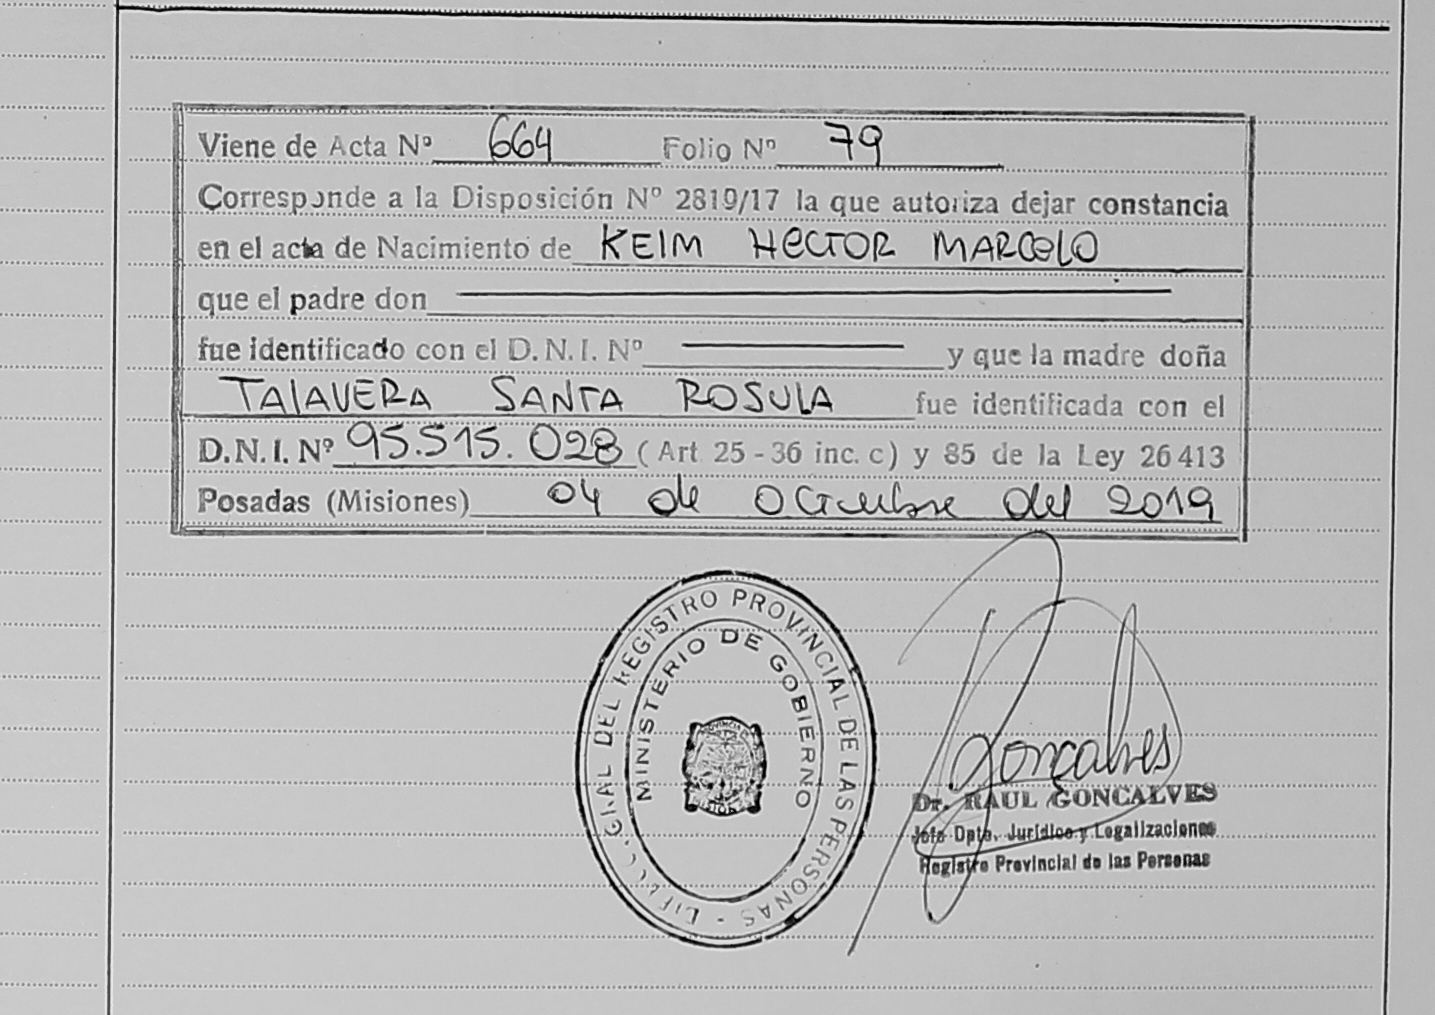 Viene de Acta Nº 664 Folio Nº 79
Corresponde a la Disposición Nº 2819/17 la que autoriza dejar constancia
en el acta de Nacimiento de KEIM HECTOR MARCELO
que el padre don
fue identificado con el D. N. I. Nº y que la madre doña
TALAVERA SANTA ROSULA fue identificada con el
D. N. I. Nº 95.515.028 ( Art 25 - 36 inc. c ) y 85 de la Ley 26 413
Posadas (Misiones) 04 de Octubre del 2019
DEL REGISTRO PROVINCIAL DE LAS PERSONAS
MINISTERIO DE GOBIERNO
Gonçalves
Dr. RAUL GONCALVES
Jefe Dpto. Jurídico y Legalizaciones
Registro Provincial de las Personas